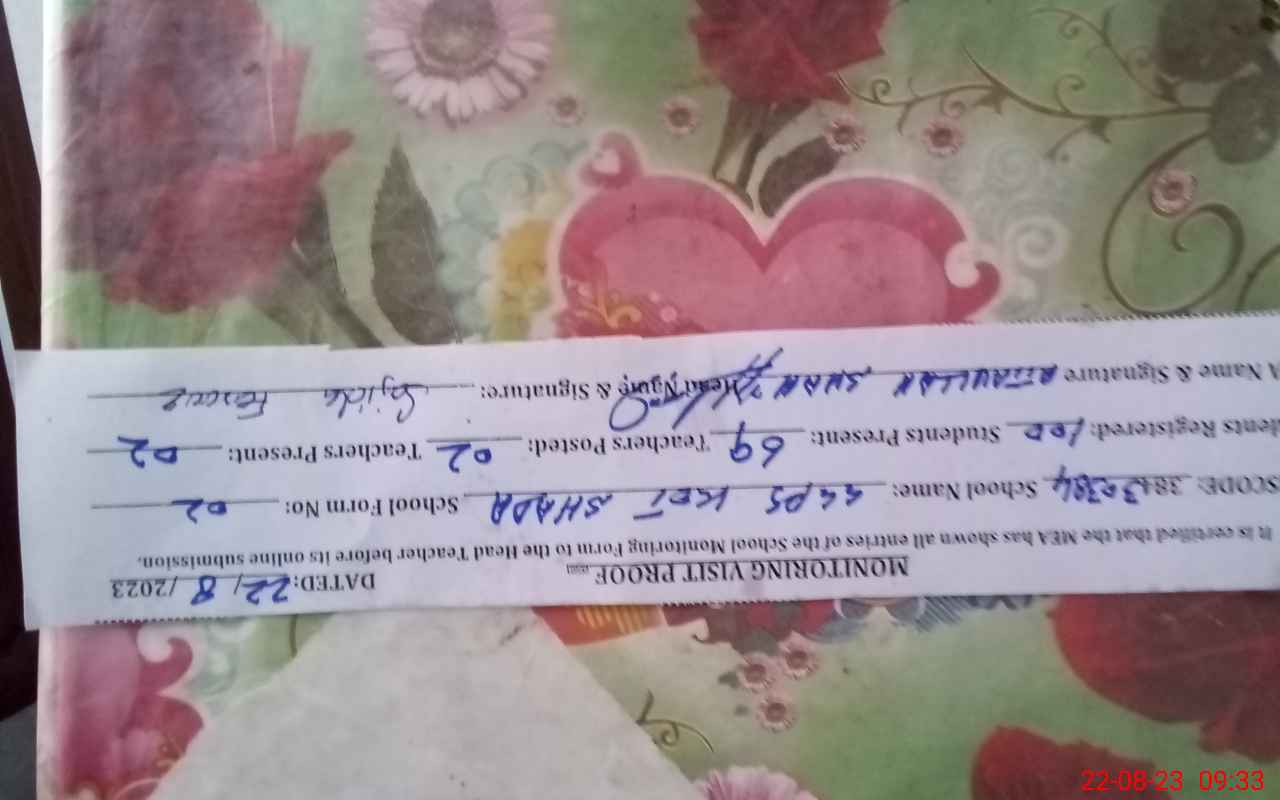 MONITORING VISIT PROOF DATED: 22/8/2023
It is certified that the MEA has shown all entries of the School Monitoring Form to the Head Teacher before its online submission.
SCODE: 38430384 School Name: GGPS KOT SHADA School Form No: 02
dents Registered: 100 Students Present: 69 Teachers Posted: 02 Teachers Present: 02
A Name & Signature ATTAULLAH SHAH Head Name & Signature: Sajida
22-08-23 09:33